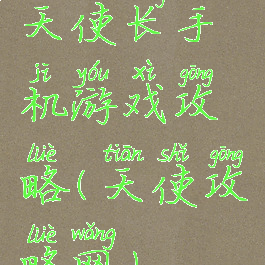 天使长手
jī yóu xì gōng
机游戏攻
lüè tiān shǐ gōng
略(天使攻
lüè wǎng
略网)